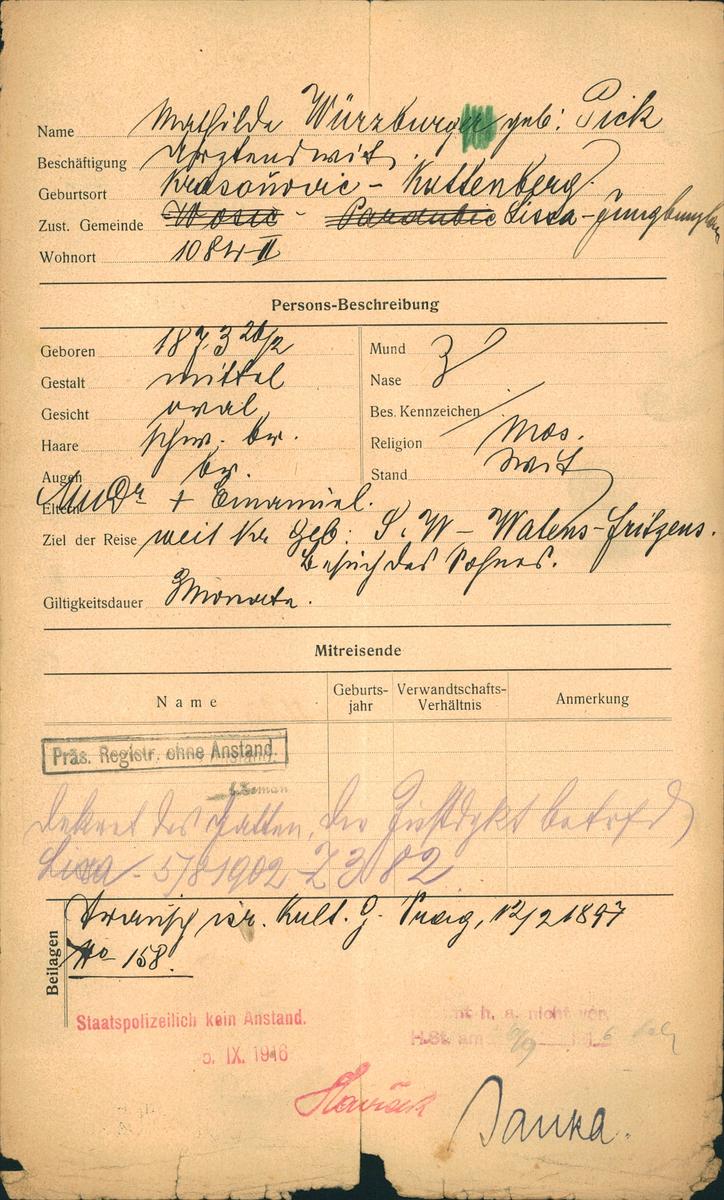 Name Mathilde Würzburger geb: Pick
Beschäftigung Arztenswit.
Geburtsort Krasoňovic - Kuttenberg.
Zust. Gemeinde Wosic - Pardubic Lissa - Jungbunzlau
Wohnort 1084-II
Persons-Beschreibung
Geboren 1873 20/2
Gestalt mittel
Gesicht oval
Haare schw. br.
Augen br.
Eltern MUDr + Emanuel.
Mund
Nase
Bes. Kennzeichen
Religion mos.
Stand Wit
Ziel der Reise weit Kr Geb: S. W - Watens-Fritzens.
Besuch des Sohnes.
Giltigkeitsdauer 3 Monate.
Mitreisende
Name
Geburts-jahr
Verwandtschafts-Verhältnis
Anmerkung
Präs. Registr. ohne Anstand.
Dekret des Gatten, die Zustdgkt betrfd
Lissa - 5/8 1902 Z 382
Beilagen
Trausch isr. Kult. G. Prag, 12/2 1897
No 158.
Staatspolizeilich kein Anstand.
5. IX. 1916
h. a. nicht vor.
H.St. am 6/9 1916
Janka.